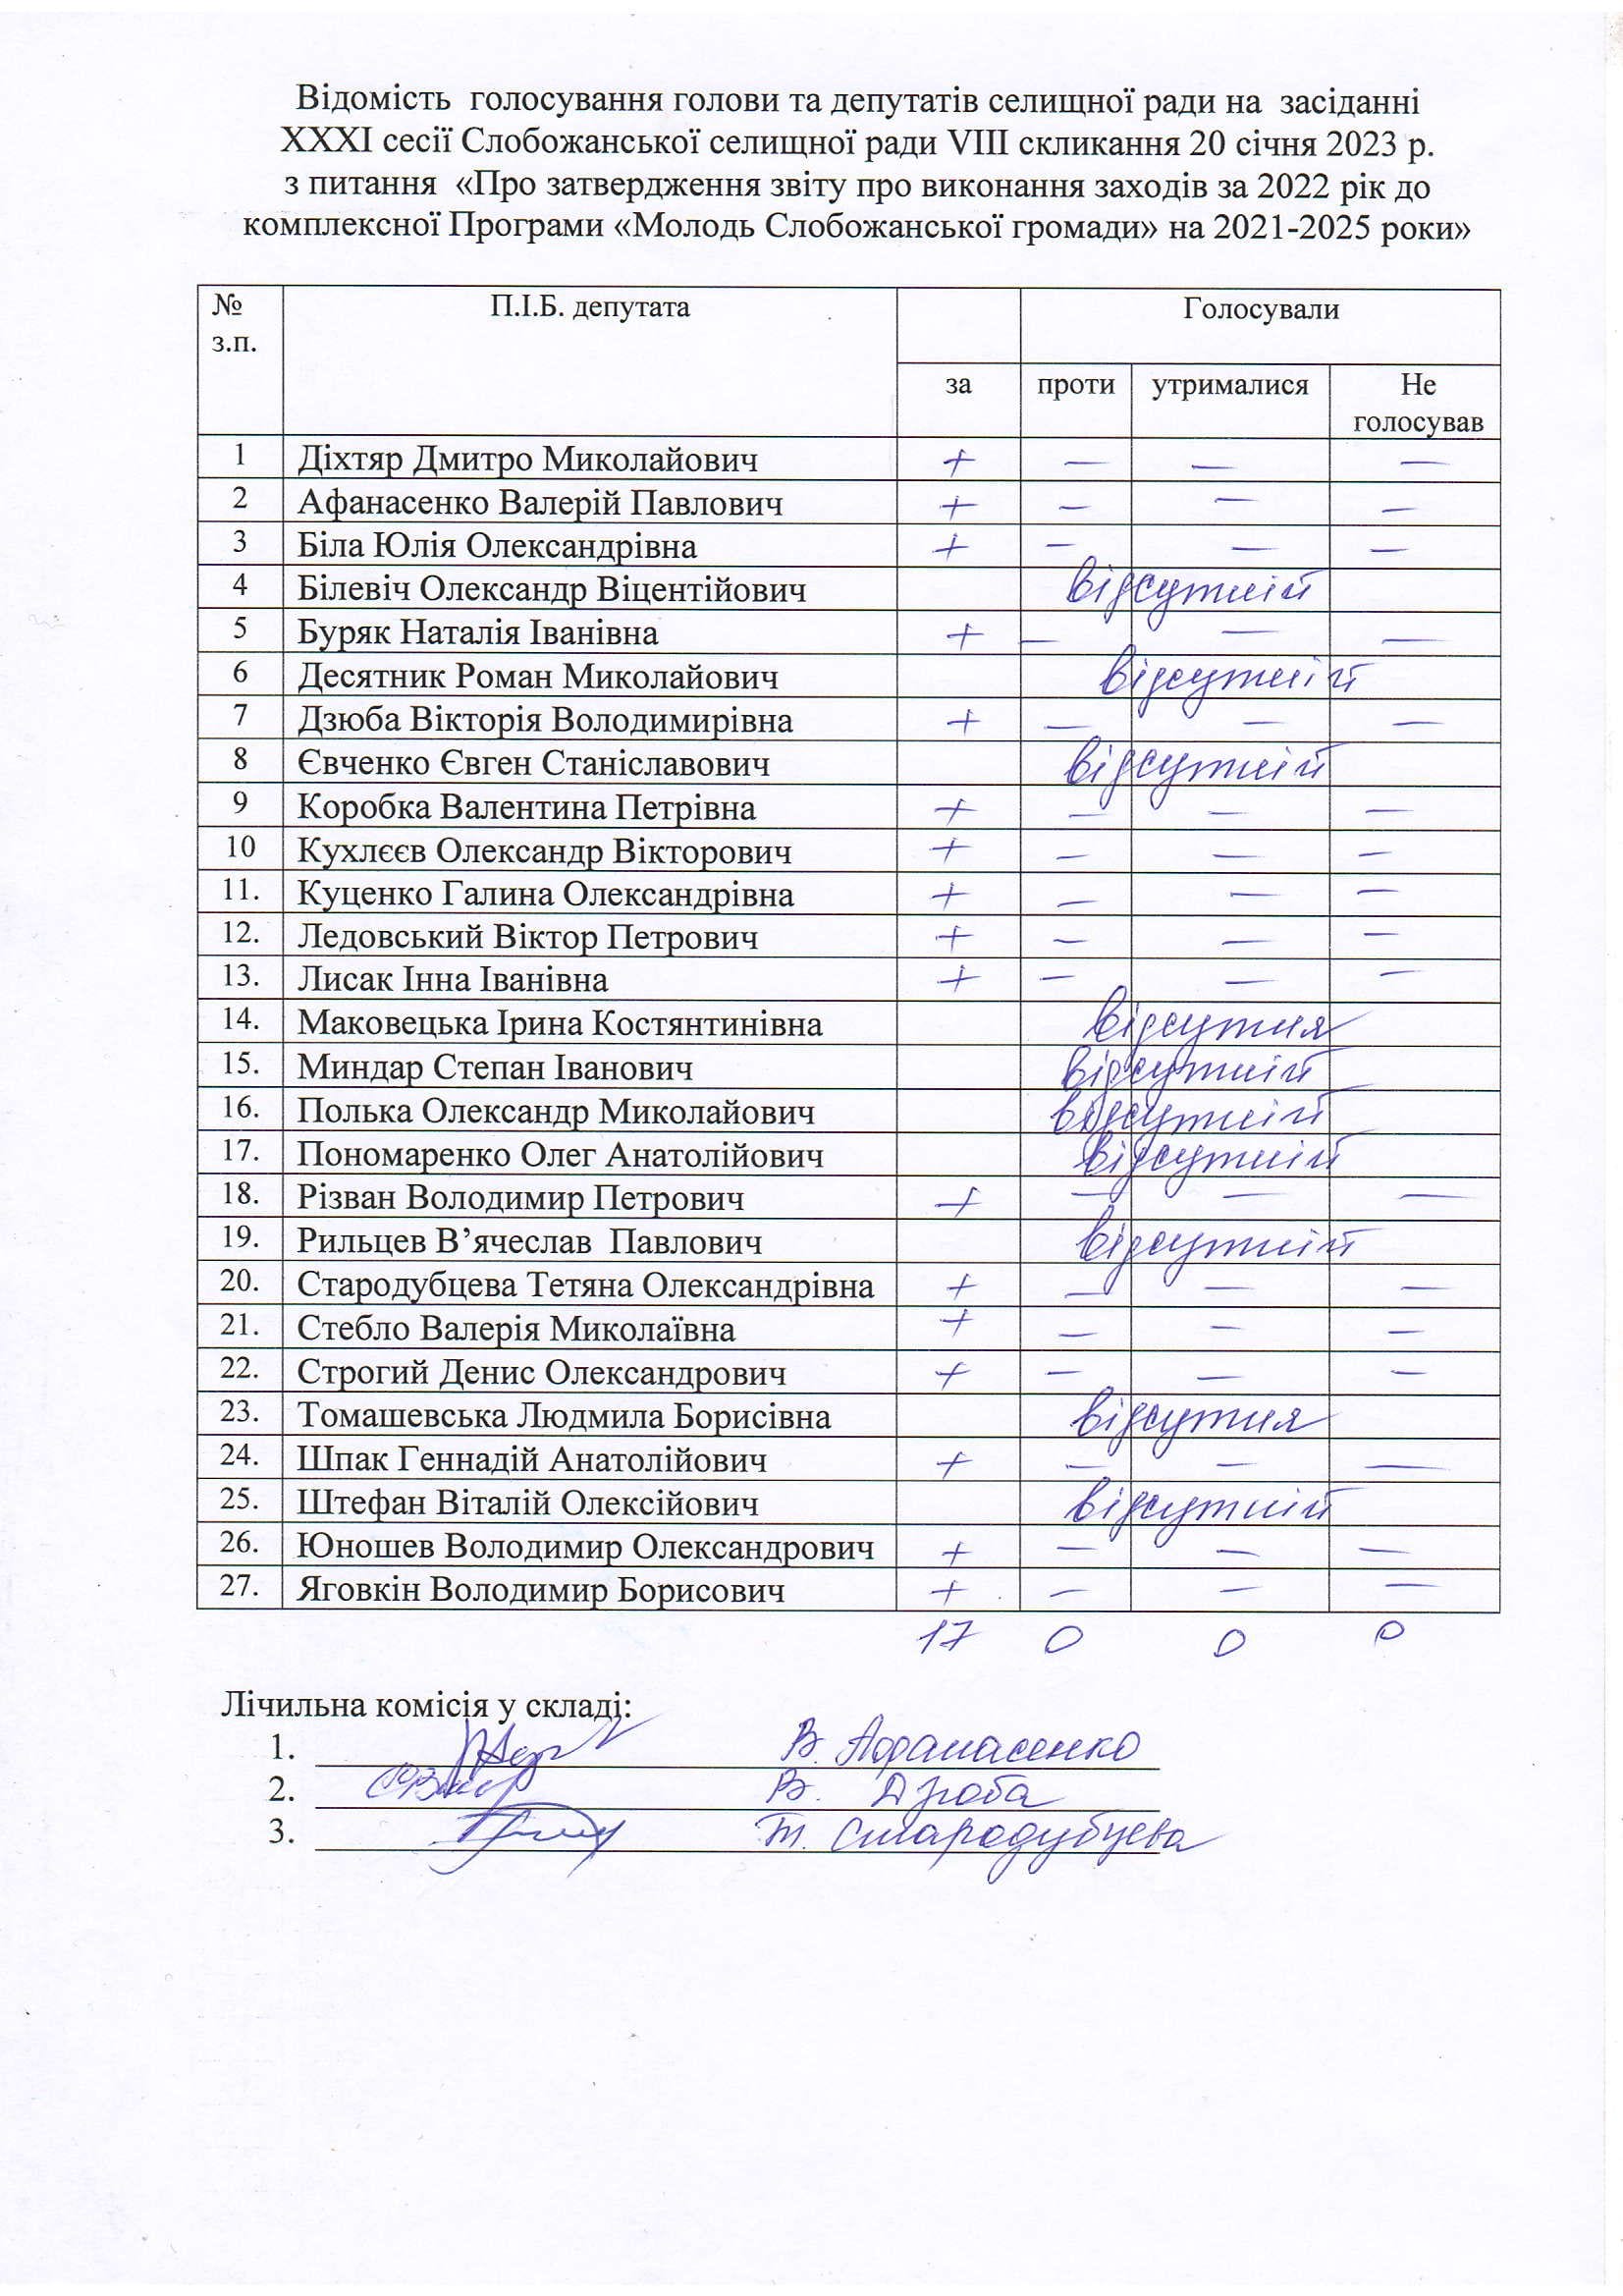 Відомість голосування голови та депутатів селищної ради на засіданні
XXXI сесії Слобожанської селищної ради VIII скликання 20 січня 2023 р.
з питання «Про затвердження звіту про виконання заходів за 2022 рік до
комплексної Програми «Молодь Слобожанської громади» на 2021-2025 роки»
№ з.п. П.І.Б. депутата Голосували
за проти утрималися Не голосував
1 Діхтяр Дмитро Миколайович + — — —
2 Афанасенко Валерій Павлович + — — —
3 Біла Юлія Олександрівна + — — —
4 Білевіч Олександр Віцентійович відсутній
5 Буряк Наталія Іванівна + — — —
6 Десятник Роман Миколайович відсутній
7 Дзюба Вікторія Володимирівна + — — —
8 Євченко Євген Станіславович відсутній
9 Коробка Валентина Петрівна + — — —
10 Кухлєєв Олександр Вікторович + — — —
11. Куценко Галина Олександрівна + — — —
12. Ледовський Віктор Петрович + — — —
13. Лисак Інна Іванівна + — — —
14. Маковецька Ірина Костянтинівна відсутня
15. Миндар Степан Іванович відсутній
16. Полька Олександр Миколайович відсутній
17. Пономаренко Олег Анатолійович відсутній
18. Різван Володимир Петрович + — — —
19. Рильцев В’ячеслав Павлович відсутній
20. Стародубцева Тетяна Олександрівна + — — —
21. Стебло Валерія Миколаївна + — — —
22. Строгий Денис Олександрович + — — —
23. Томашевська Людмила Борисівна відсутня
24. Шпак Геннадій Анатолійович + — — —
25. Штефан Віталій Олексійович відсутній
26. Юношев Володимир Олександрович + — — —
27. Яговкін Володимир Борисович + — — —
17 0 0 0
Лічильна комісія у складі:
1. В. Афанасенко
2. В. Дзюба
3. Т. Стародубцева